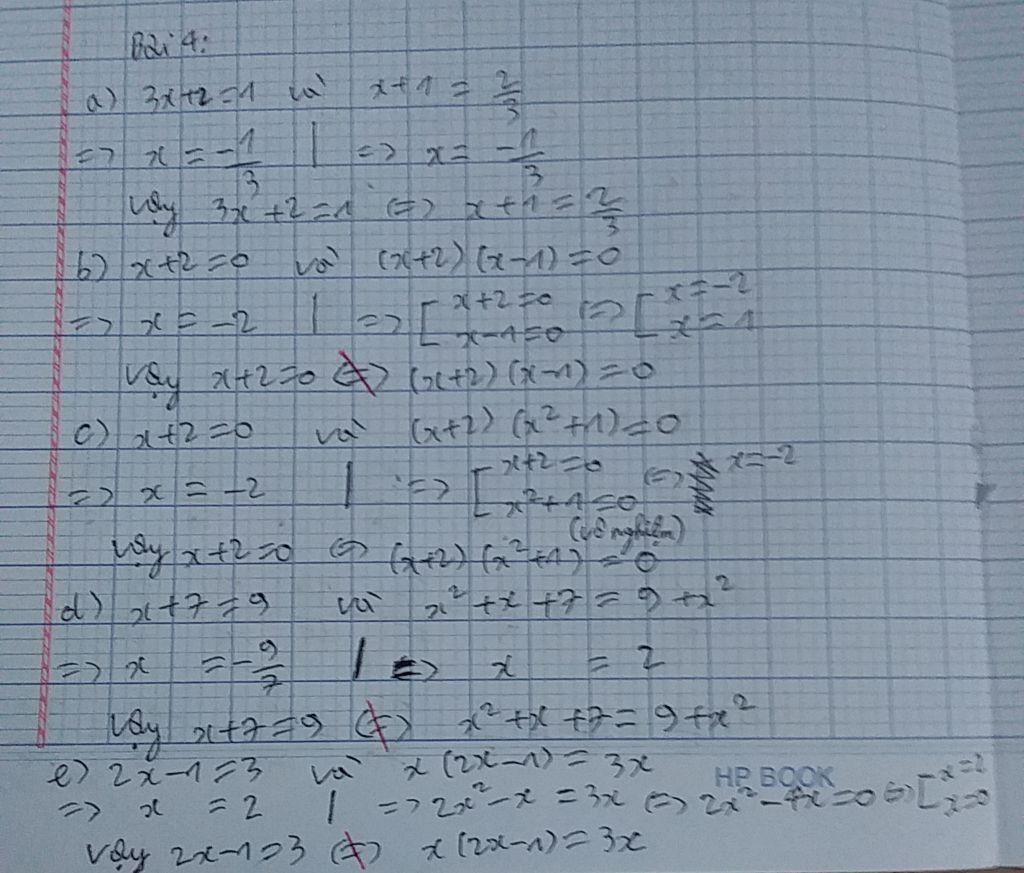 Bài 4:
a) 3x+2=1 và x+1 = 2/3
=> x = -1/3 | => x = -1/3
Vậy 3x+2=1 <=> x+1 = 2/3
b) x+2=0 và (x+2)(x-1)=0
=> x = -2 | => [x+2=0 x-1=0 <=> [x=-2 x=1
Vậy x+2=0 <≠> (x+2)(x-1)=0
c) x+2=0 và (x+2)(x²+1)=0
=> x = -2 | => [x+2=0 x²+1=0 (vô nghiệm) <=> x=-2
Vậy x+2=0 <=> (x+2)(x²+1)=0
d) x+7=9 và x²+x+7=9+x²
=> x = -9/7 | => x = 2
Vậy x+7=9 <≠> x²+x+7=9+x²
e) 2x-1=3 và x(2x-1)=3x
HP BOOK
=> x = 2 | => 2x²-x=3x <=> 2x²-4x=0 <=> [x=2 x=0
Vậy 2x-1=3 <≠> x(2x-1)=3x